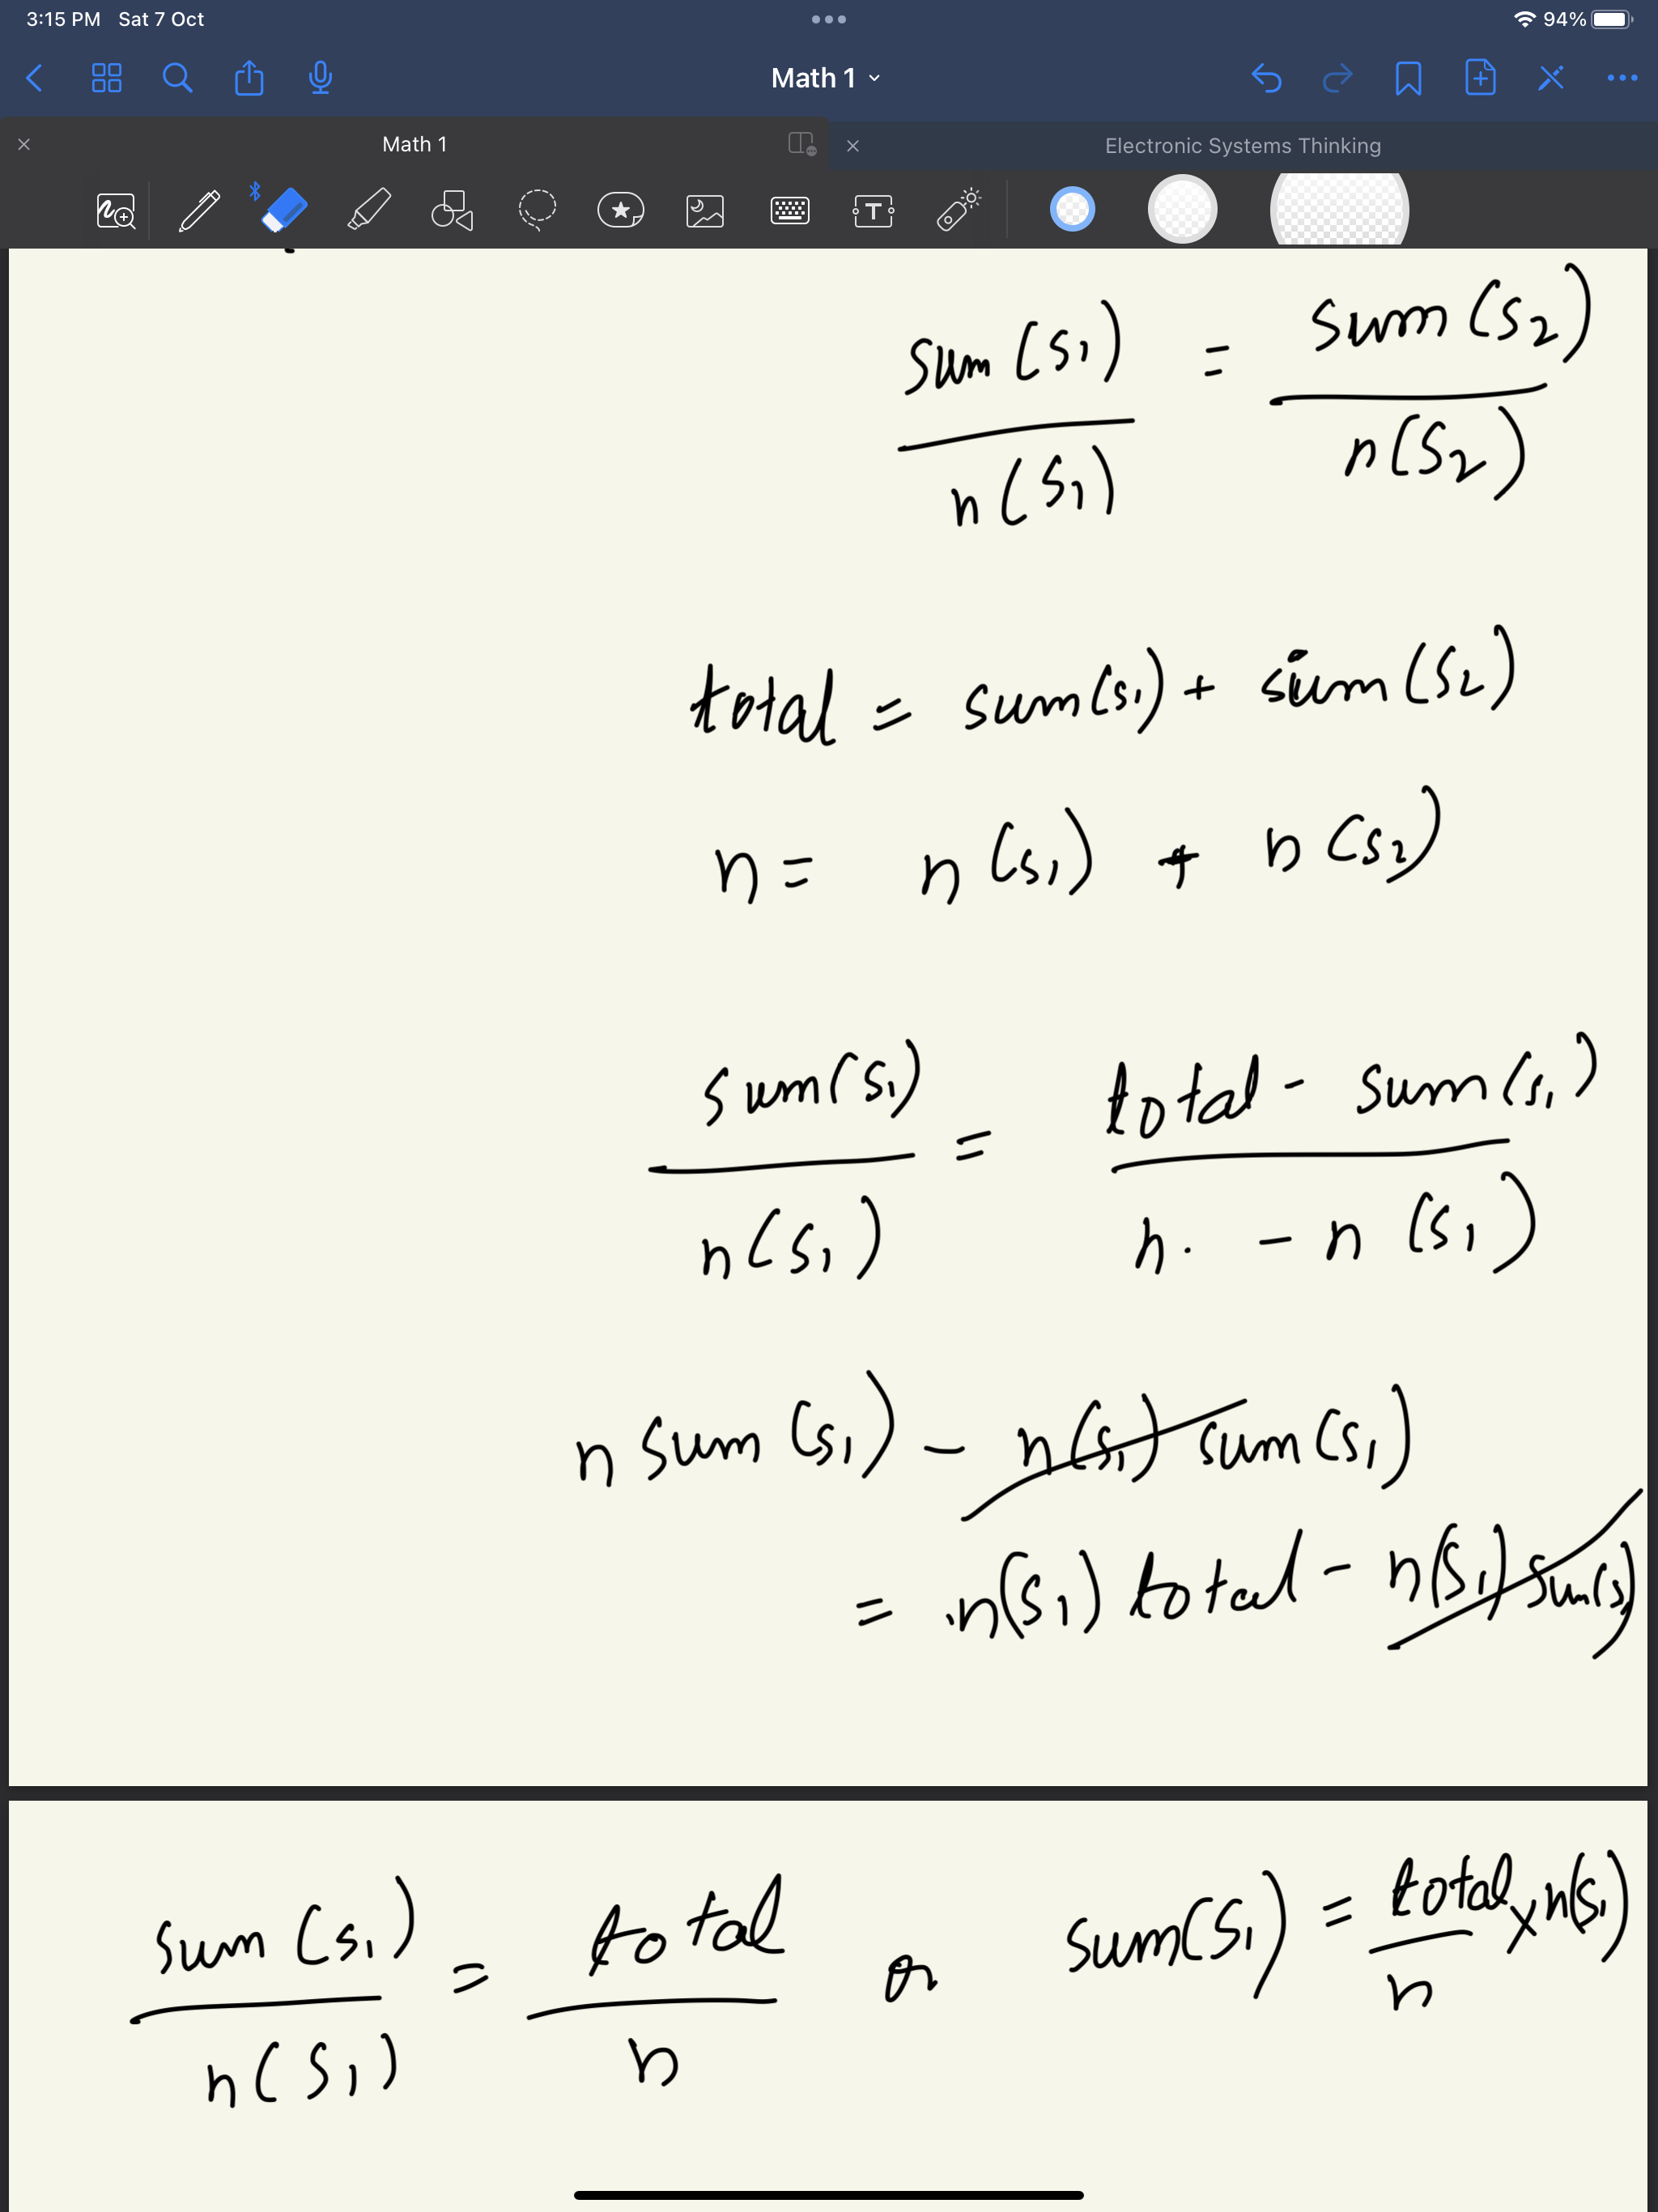 3:15 PM Sat 7 Oct 94%
Math 1
Math 1 Electronic Systems Thinking
T
sum (s₁) = sum (s₂)
n(s₁) n(s₂)
total = sum(s₁) + sum(s₂)
n = n(s₁) + n(s₂)
sum(s₁) = total - sum(s₁)
n(s₁) n. - n(s₁)
n sum(s₁) - n(s₁) sum(s₁)
= n(s₁) total - n(s₁) sum(s)
sum(s₁) = total or sum(s₁) = total x n(s₁)
n(s₁) n n